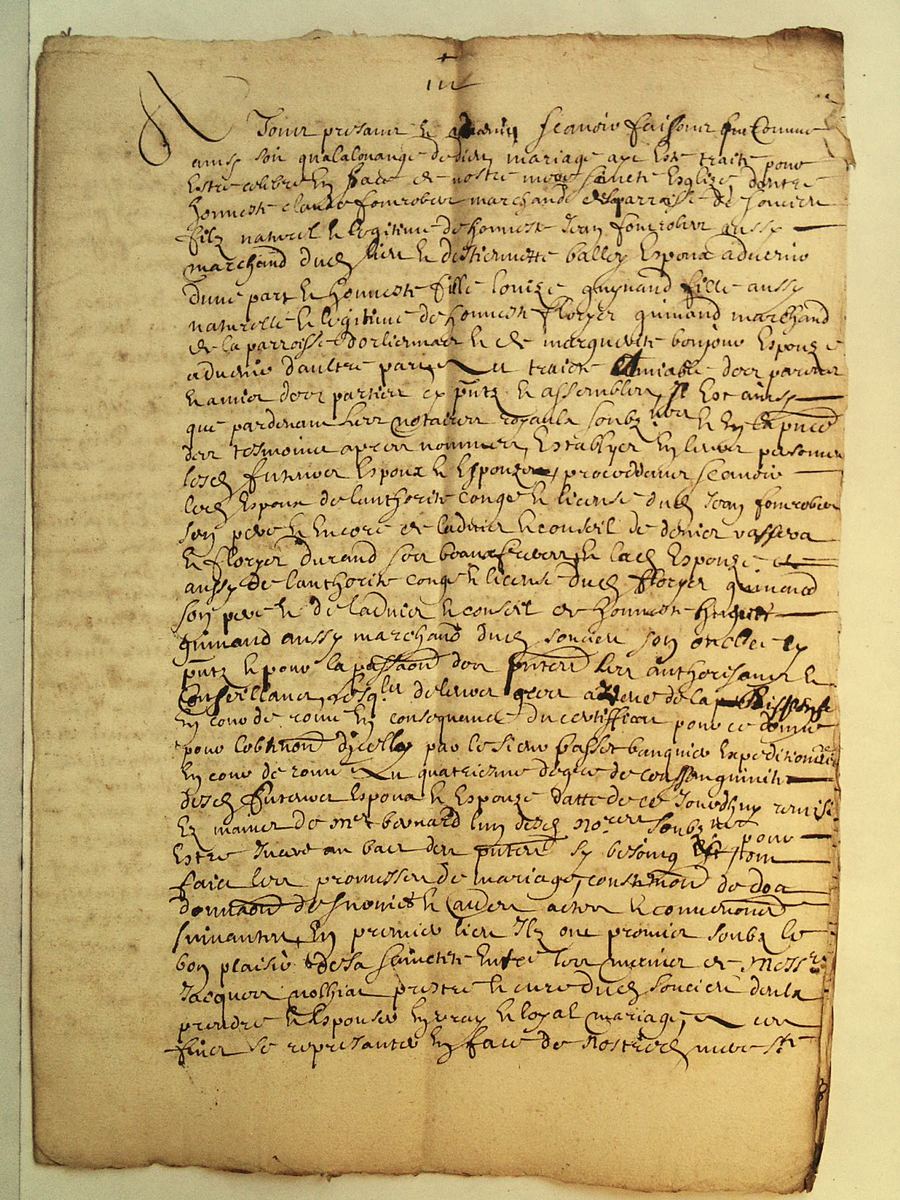 A Tous presans & advenir scavoir faisons que comme
ainsy soit qua la louange de dieu mariage aye este traité pour
estre celebré en face de nostre mere saincte esglize dentre
honneste claude fourobert marchand de la parroisse de soucieu
filz naturel & legitime de honneste Jean fourobert aussy
marchand dud lieu & destiennette balley espoux advenir
dune part & honneste fille louize guinand fille aussy
naturelle & legitime de honneste floryer guinand marchand
de la parroisse dorlienas & de marguerite bonjour espouze
advenir daultre part Au traicté amiable des parens
& amis des parties cy pntz & assembles Il est ainsy
que pardevant les notaires royaulx soubz nes & en la pnce
des tesmoins apres nommes establyes en leurs personnes
lesd futures espoux & espouze, procedans scavoir
led espoux de lauthorité congé & licence dud Jean fourobert
son pere & encore de ladvis & conseil de denis vassera
& floryer durand ses beauxfreres & lad espouze
aussy de lauthorité congé & licence dud floryer guinand
son pere & de ladvis & conseil de honneste
guinand aussy marchand dud soucieu son oncle cy
pntz & pour la passaon des pntes les authorisans &
conseillans, lesqlz de leurs gres de la
en cour de rome en consequence du certifficat pour ce donné
pour lobtenon dicelle par le sieur basset banquier expeditionre
en cour de rome Au quatriesme degré de consanguinité
desd futures espoux & espouze datté de ce jourdhuy remise
es mains de mre bernard lun desd nores soubz nes pour
estre Inseré au bas des pntes sy besoing est, ont
faict les promesses de mariage, constitution de dot
donnaons de survie & aultres actes & conventions
suivantes, En premier lieu Ilz ont promis soubz le
bon plaisir de sa saincteté entre les mains de Messre
Jacques nolhiac prestre & curé dud soucieu de se
prendre & espouser en vray & loyal mariage, & a ces
fins se representer en face de nostred mere ste